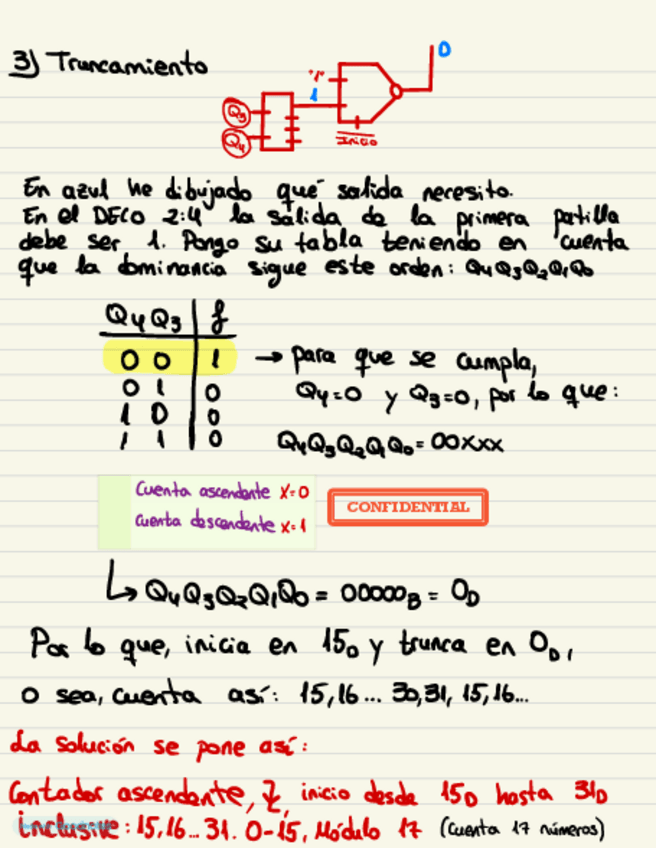 3) Truncamiento
"1"
1
0
Q3
Q4
Inicio
En azul he dibujado qué salida necesito.
En el DECO 2:4 la salida de la primera patilla
debe ser 1. Pongo su tabla teniendo en cuenta
que la dominancia sigue este orden: Q4Q3Q2Q1Q0
Q4 Q3 f
0 0 1 → para que se cumpla,
0 1 0 Q4=0 y Q3=0, por lo que:
1 0 0
1 1 0 Q4Q3Q2Q1Q0 = 00XXX
Cuenta ascendente X=0
Cuenta descendente X=1
CONFIDENTIAL
↳ Q4Q3Q2Q1Q0 = 00000B = 0D
Por lo que, inicia en 15D y trunca en 0D,
o sea, cuenta así: 15,16... 30,31, 15,16...
La solución se pone así:
Contador ascendente, inicio desde 15D hasta 31D
inclusive: 15,16... 31. 0-15, Módulo 17 (cuenta 17 números)